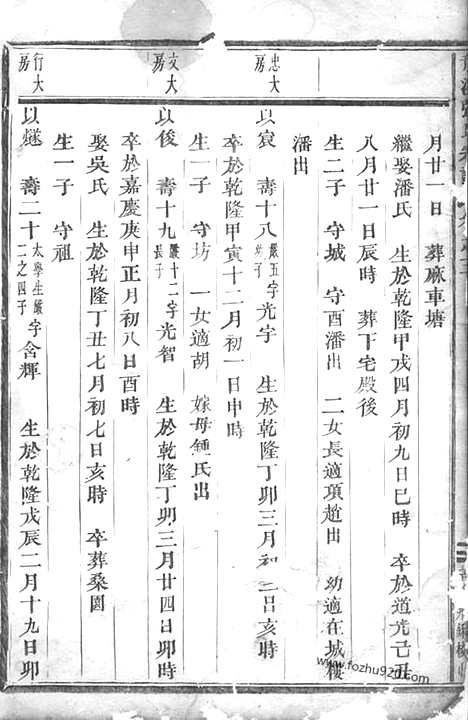 月廿一日 葬麻車塘
繼娶潘氏 生於乾隆甲戌四月初九日巳時 卒於道光己丑
八月廿一日辰時 葬下宅殿後
生二子 守城 守酉潘出 二女長適項趙出 幼適在城樓
潘出
忠大房
以宸 壽十八 嚴五字 幼子 光字 生於乾隆丁卯三月初二日亥時
卒於乾隆甲寅十二月初一日申時
生一子 守坊 一女適胡 嫁母鍾氏出
文大房
以俊 壽十九 嚴十二字 長子 光智 生於乾隆丁卯三月廿四日卯時
卒於嘉慶庚申正月初八日酉時
娶吳氏 生於乾隆丁丑七月初七日亥時 卒葬桑園
生一子 守祖
行大房
以燧 壽二十 太學生嚴 二之四子 字含輝 生於乾隆戊辰二月十九日卯
www.fozhu920.com